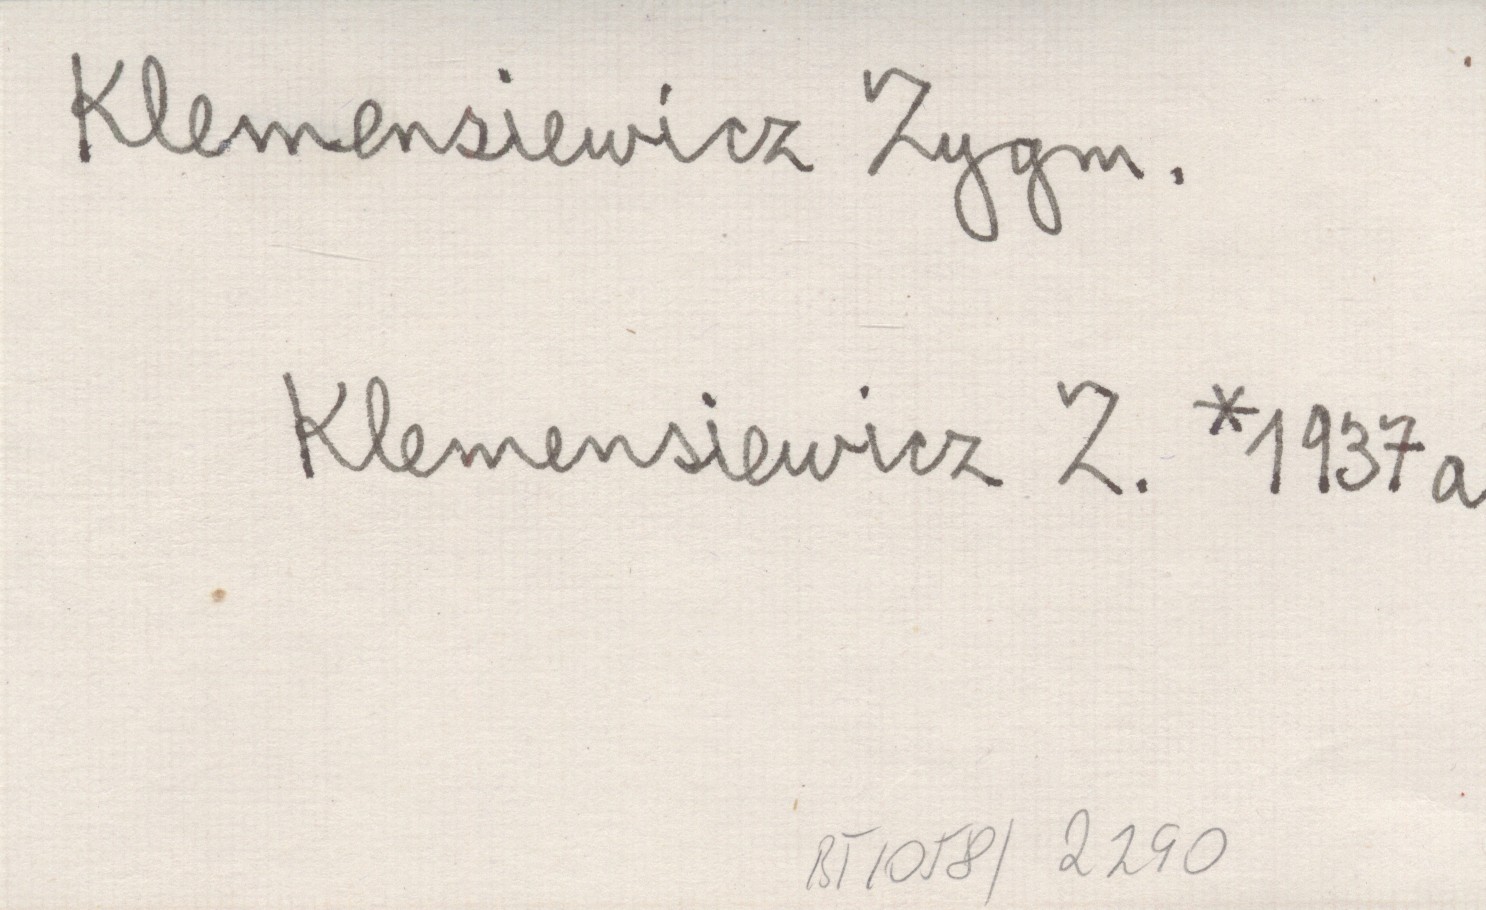 Klemensiewicz Zygm.
Klemensiewicz Z. *1937a
BT1058/ 2290